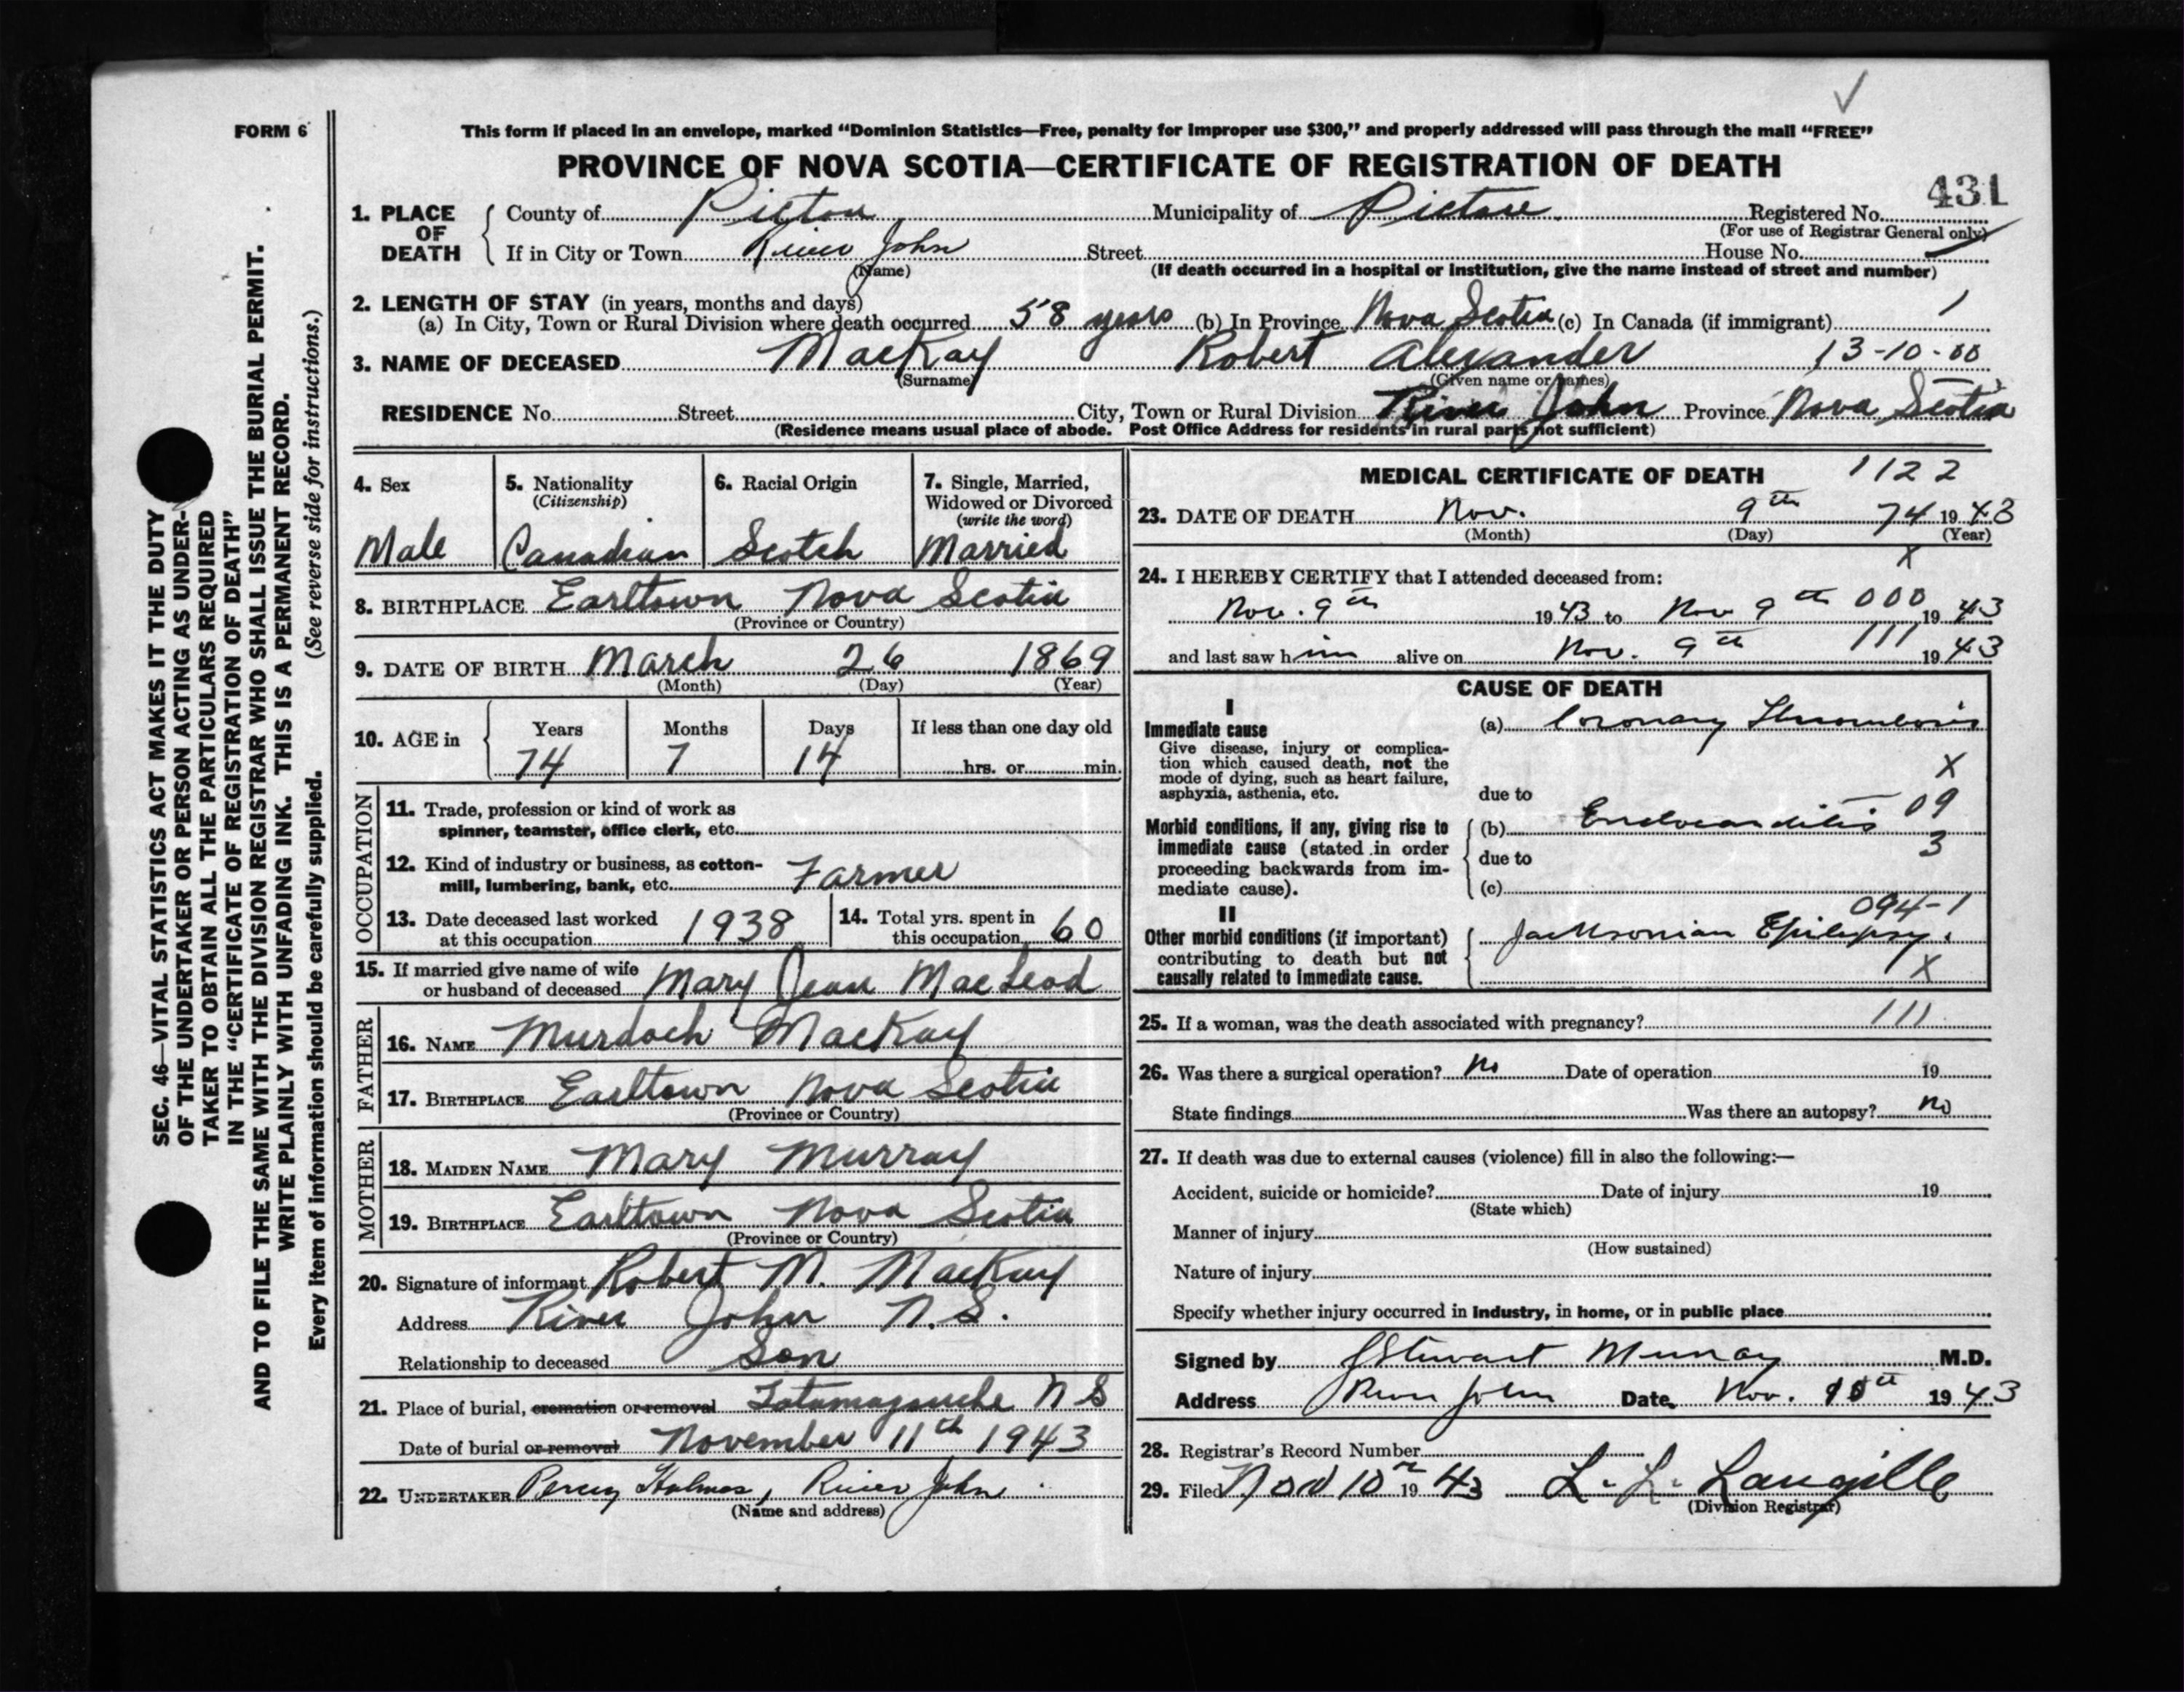 FORM 6
This form if placed in an envelope, marked “Dominion Statistics—Free, penalty for improper use $300,” and properly addressed will pass through the mail “FREE”
PROVINCE OF NOVA SCOTIA—CERTIFICATE OF REGISTRATION OF DEATH
431
1. PLACE OF DEATH County of Pictou Municipality of Pictou Registered No.
(For use of Registrar General only)
If in City or Town River John Street House No.
(Name) (If death occurred in a hospital or institution, give the name instead of street and number)
2. LENGTH OF STAY (in years, months and days)
(a) In City, Town or Rural Division where death occurred 58 years (b) In Province Nova Scotia (c) In Canada (if immigrant)
3. NAME OF DECEASED MacKay Robert Alexander 13-10-00
(Surname) (Given name or names)
RESIDENCE No. Street City, Town or Rural Division River John Province Nova Scotia
(Residence means usual place of abode. Post Office Address for residents in rural parts not sufficient)
4. Sex
Male
5. Nationality
(Citizenship)
Canadian
6. Racial Origin
Scotch
7. Single, Married,
Widowed or Divorced
(write the word)
Married
8. BIRTHPLACE Earltown Nova Scotia
(Province or Country)
9. DATE OF BIRTH March 26 1869
(Month) (Day) (Year)
10. AGE in Years Months Days If less than one day old
74 7 14 hrs. or min.
OCCUPATION
11. Trade, profession or kind of work as
spinner, teamster, office clerk, etc.
12. Kind of industry or business, as cotton-
mill, lumbering, bank, etc. Farmer
13. Date deceased last worked
at this occupation 1938
14. Total yrs. spent in
this occupation 60
15. If married give name of wife
or husband of deceased Mary Jean MacLeod
FATHER
16. NAME Murdoch MacKay
17. BIRTHPLACE Earltown Nova Scotia
(Province or Country)
MOTHER
18. MAIDEN NAME Mary Murray
19. BIRTHPLACE Earltown Nova Scotia
(Province or Country)
20. Signature of informant Robert M. MacKay
Address River John N.S.
Relationship to deceased Son
21. Place of burial, cremation or removal Tatamagouche N S
Date of burial or removal November 11th 1943
22. UNDERTAKER Percy Holmes, River John
(Name and address)
MEDICAL CERTIFICATE OF DEATH 1122
23. DATE OF DEATH Nov. 9th 74 1943
(Month) (Day) (Year)
X
24. I HEREBY CERTIFY that I attended deceased from:
Nov. 9th 1943 to Nov 9th 000 1943
and last saw him alive on Nov. 9th 111 1943
CAUSE OF DEATH
I
Immediate cause (a) Coronary Thrombosis
Give disease, injury or complica-
tion which caused death, not the
mode of dying, such as heart failure,
asphyxia, asthenia, etc.
X
due to
Morbid conditions, if any, giving rise to
immediate cause (stated in order
proceeding backwards from im-
mediate cause).
(b) Endocarditis 09
due to 3
(c)
094-1
II
Other morbid conditions (if important)
contributing to death but not
causally related to immediate cause.
Jacksonian Epilepsy.
X
25. If a woman, was the death associated with pregnancy? 111
26. Was there a surgical operation? No Date of operation 19
State findings Was there an autopsy? no
27. If death was due to external causes (violence) fill in also the following:—
Accident, suicide or homicide? Date of injury 19
(State which)
Manner of injury
(How sustained)
Nature of injury
Specify whether injury occurred in industry, in home, or in public place
Signed by J Stewart Murray M.D.
Address River John Date Nov. 10th 1943
28. Registrar's Record Number
29. Filed Nov 10 1943 L. L. Langille
(Division Registrar)
SEC. 46—VITAL STATISTICS ACT MAKES IT THE DUTY
OF THE UNDERTAKER OR PERSON ACTING AS UNDER-
TAKER TO OBTAIN ALL THE PARTICULARS REQUIRED
IN THE “CERTIFICATE OF REGISTRATION OF DEATH”
AND TO FILE THE SAME WITH THE DIVISION REGISTRAR WHO SHALL ISSUE THE BURIAL PERMIT.
WRITE PLAINLY WITH UNFADING INK. THIS IS A PERMANENT RECORD.
Every item of information should be carefully supplied. (See reverse side for instructions.)